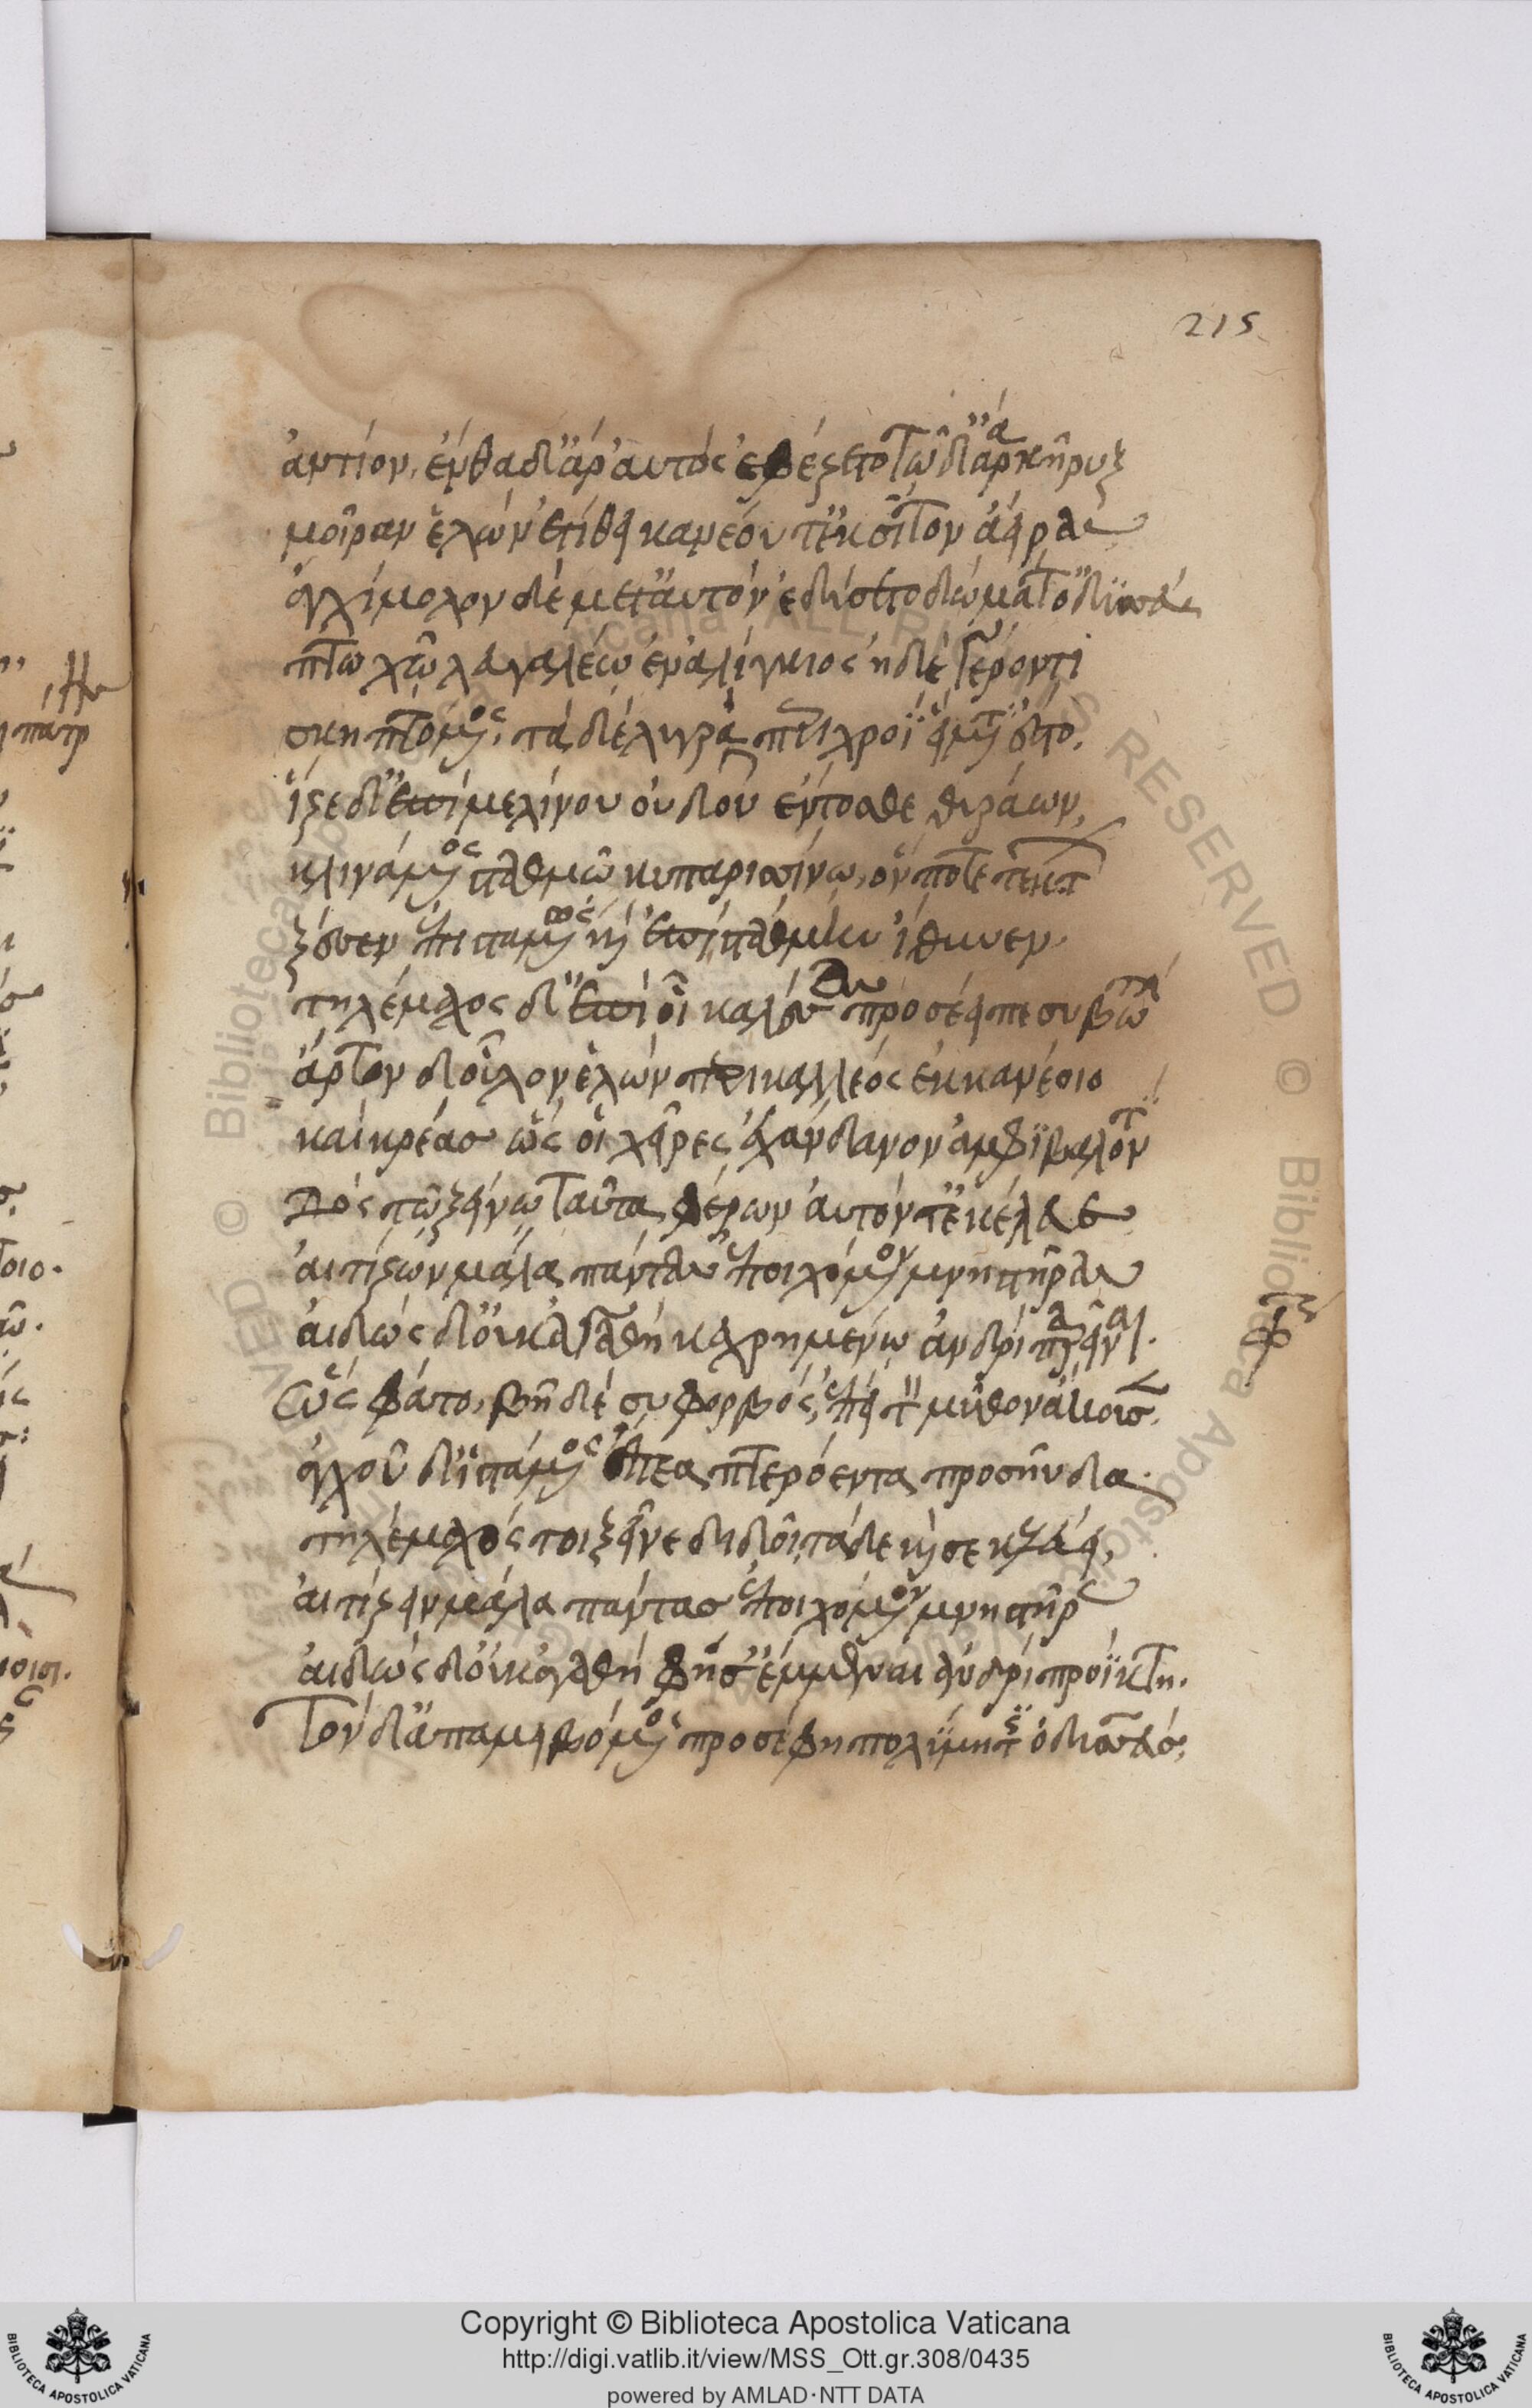 215
ἀντίον, ἔνθα δ' ἄρ' αὐτὸς ἐφέζετο τῶ δ' ἄρα κῆρυξ
μοῖραν ἑλὼν ἐτίθει κανέου τ' ἐκ σῖτον ἀείρας
ἀγχίμολον δὲ μετ' αὐτὸν ἐδύσετο δώματ' ὀδυσσεύς
πτωχῶ λευγαλέω ἐναλίγκιος ἠδὲ γέροντι
σκηπτόμενος, τὰ δὲ λυγρὰ περὶ χροῒ εἵματα ἕστο.
ἷζε δ' ἐπὶ μελίνου οὐδοῦ ἔντοσθε θυράων,
κλινάμενος σταθμῶ κυπαρισσίνω, ὅν ποτε τέκτων
ξέσσεν ἐπισταμένως καὶ ἐπὶ στάθμην ἴθυνεν.
τηλέμαχος δ' ἐπὶ οἷ καλέσας προσέειπε συβώτην
ἄρτον δ' οὖλον ἑλὼν περικαλλέος ἐκ κανέοιο
καὶ κρέας ὥς οἱ χεῖρες ἐχάνδανον ἀμφιβαλόντι
Δὸς τῶ ξείνω ταῦτα φέρων αὐτόν τε κέλευε
αἰτίζων μάλα πάντας ἐποιχόμενον μνηστῆρας
αἰδὼς δ' οὐκ ἀγαθὴ κεχρημένω ἀνδρὶ παρεῖναι.
ὣς φάτο, βῆ δὲ συφορβός, ἐπεὶ τὸν μῦθον ἄκουσεν.
ἀγχοῦ δ' ἱστάμενος ἔπεα πτερόεντα προσηύδα.
τηλέμαχός τοι ξεῖνε διδοῖ τάδε καί σε κελεύει,
αἰτίζειν μάλα πάντας ἐποιχόμενον μνηστῆρας
αἰδὼς δ' οὐκ ἀγαθή φησ' ἔμμεναι ἀνδρὶ προΐκτη.
Τὸν δ' ἀπαμειβόμενος προσέφη πολύμητις ὀδυσσεύς,
Copyright © Biblioteca Apostolica Vaticana
http://digi.vatlib.it/view/MSS_Ott.gr.308/0435
powered by AMLAD·NTT DATA